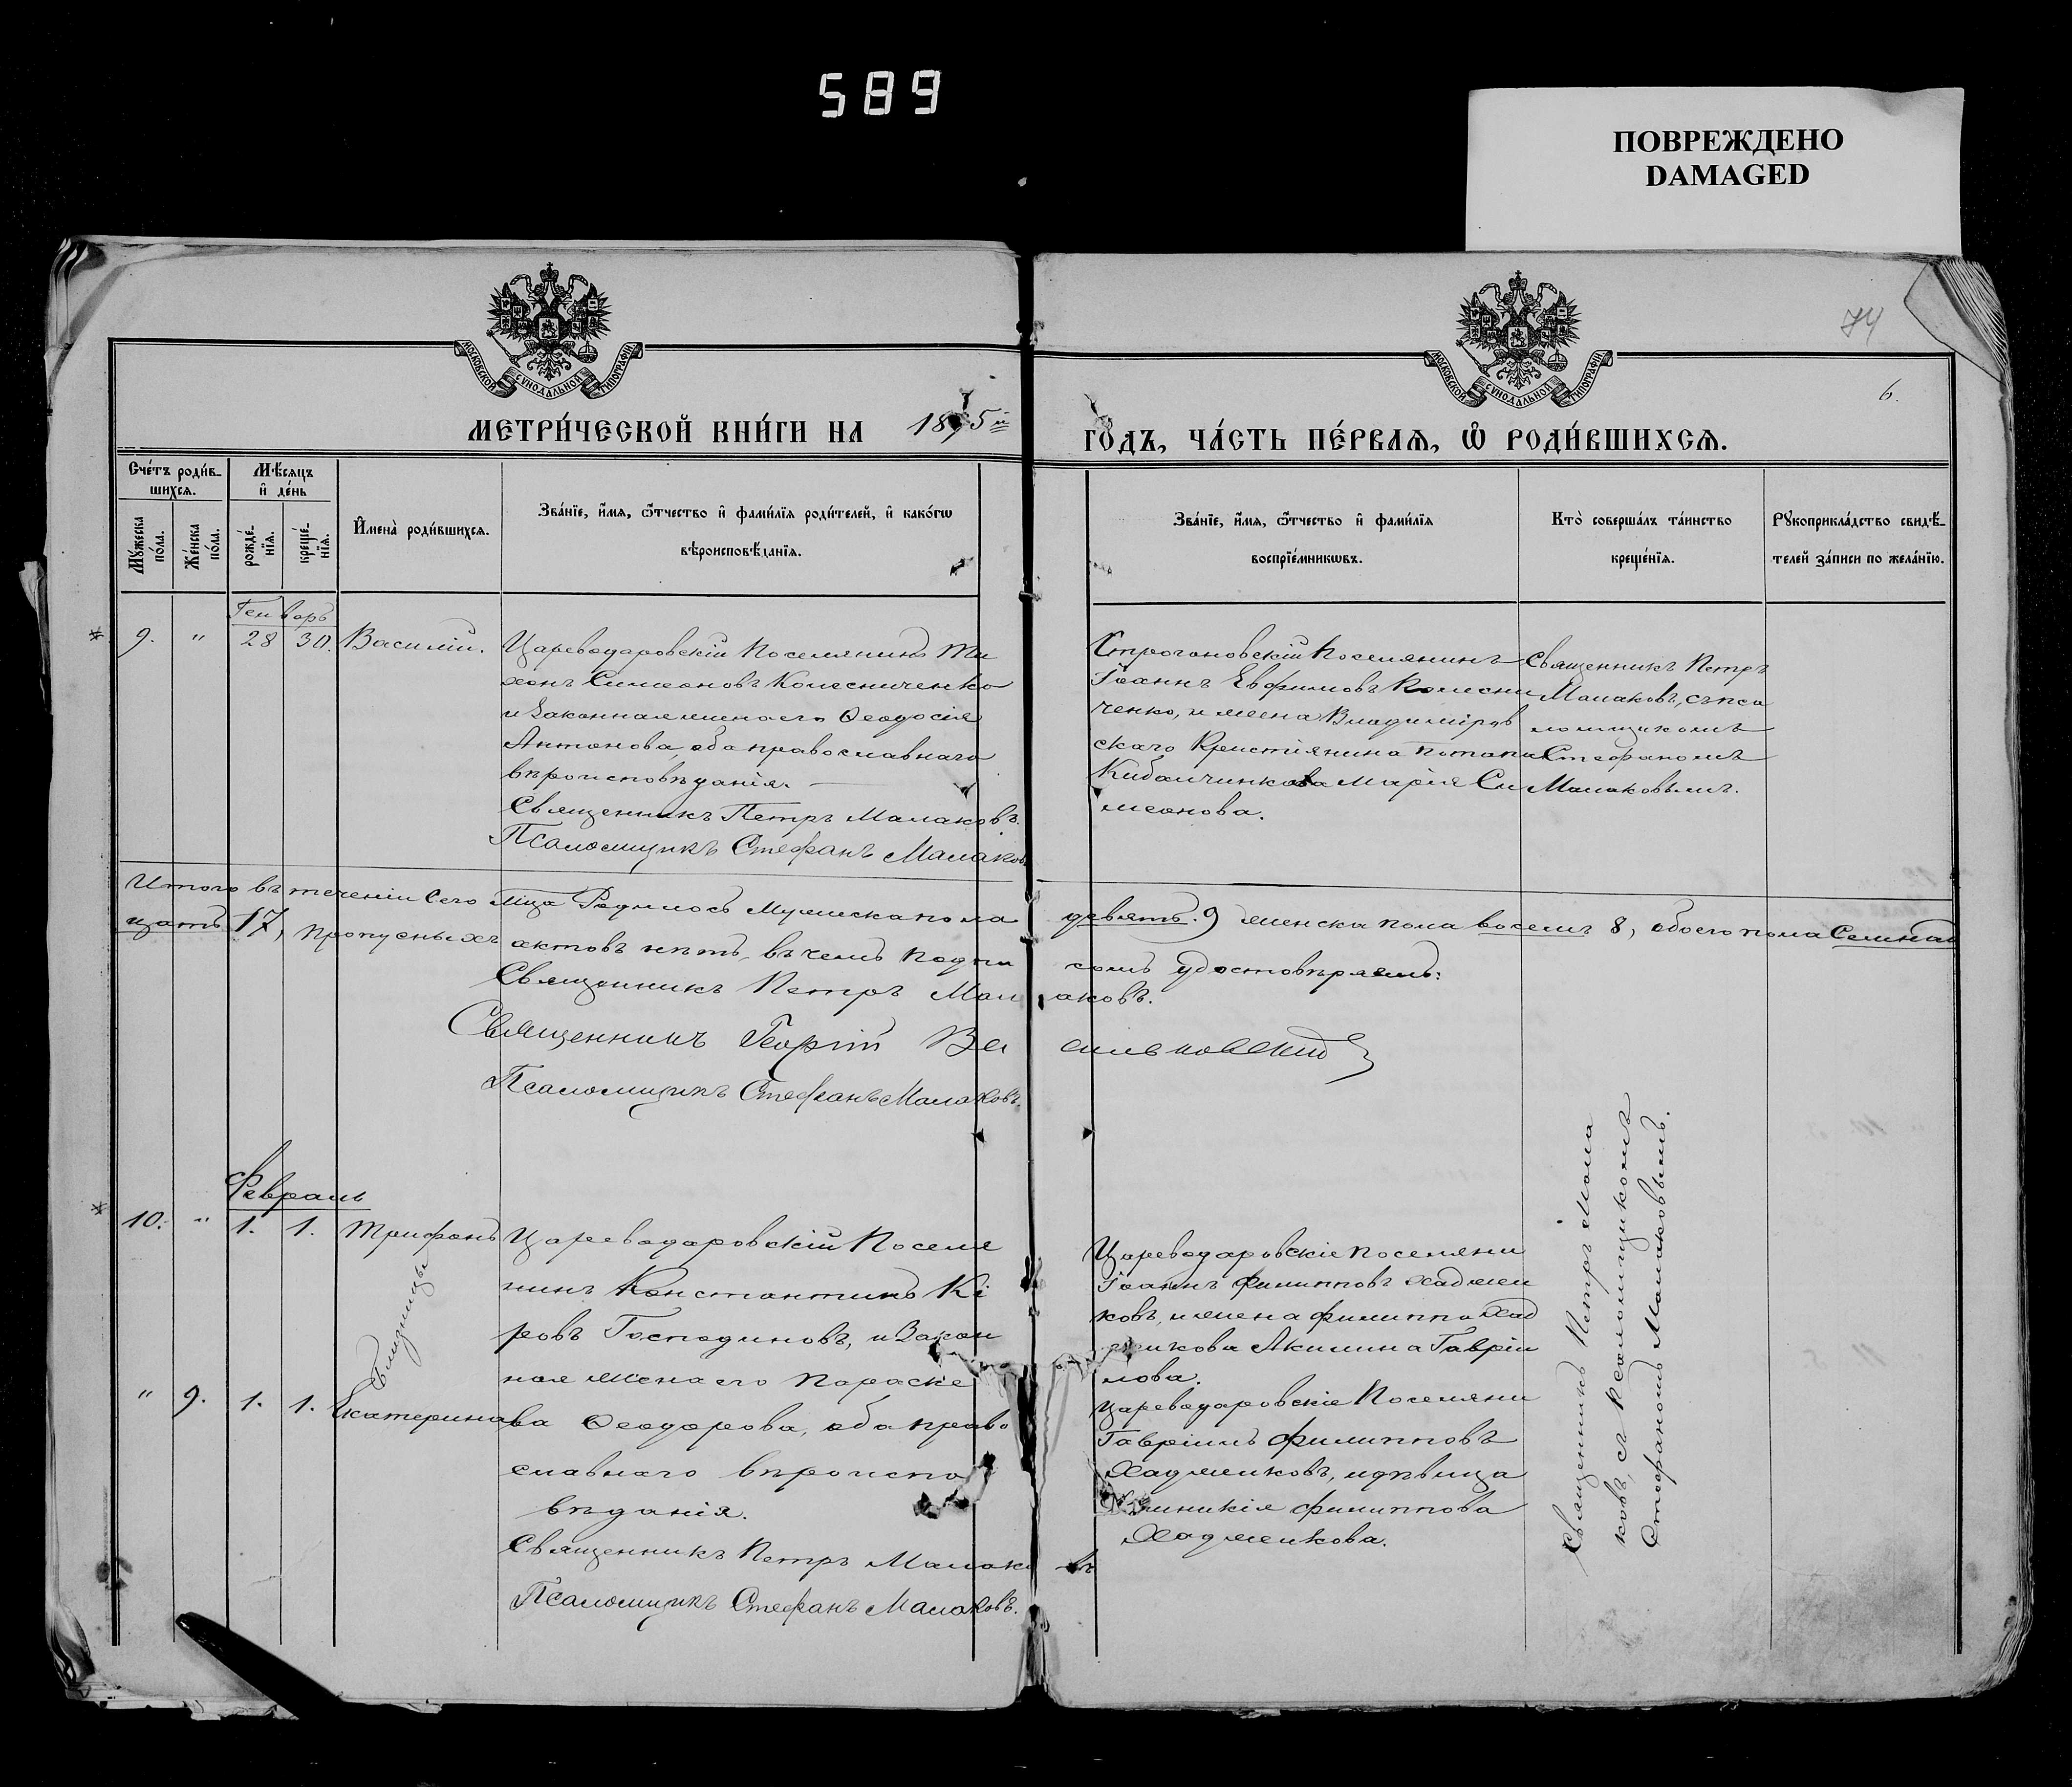 589
ПОВРЕЖДЕНО
DAMAGED
МОСКОВСКОЙ СѴНОДАЛЬНОЙ ТИПОГРАФІИ
МОСКОВСКОЙ СѴНОДАЛЬНОЙ ТИПОГРАФІИ
74
6.
МЕТРИ́ЧЕСКОЙ КНИ́ГИ НА 1895й
ГОДЪ, ЧА́СТЬ ПЕ́РВАЯ, Ѡ РОДИ́ВШИХСЯ.
Сче́тъ роди́в-
шихся.
Мѣ́сяцъ
и де́нь
Му́жеска по́ла.
Же́нска по́ла.
рожде́-
нїя.
креще́-
нїя.
И́мена̀ роди́вшихся.
Зва́нїе, и́мя, ѻ́тчество и фами́лїя роди́телей, и како́гѡ
вѣроисповѣ́данїя.
Зва́нїе, и́мя, ѻ́тчество и фами́лїя
воспрїе́мникѡвъ.
Кто̀ соверша́лъ та́инство
креще́нїя.
Рꙋкоприкла́дство свидѣ́-
телей за́писи по жела́нїю.
Генварь
9. " 28 30. Василій.
Цареводаровскій Поселянинъ Ти
хонъ Симеоновъ Колесниченко
и Законная жена его Ѳеодосія
Антонова, оба православнаго
вѣроисповѣданія.
Священникъ Петръ Малаковъ.
Псаломщикъ Стефанъ Малаковъ
Строгановскій Поселянинъ
Іоаннъ Евфимовъ Колесни
ченко, и жена Владиміров
скаго Крестіянина Потапа
Кибальчинкова Марія Си
меонова.
Священникъ Петръ
Малаковъ, съ пса
ломщикомъ
Стефаномъ
Малаковымъ.
Итого въ теченіи сего мца Родилось Мужеска пола девять. 9 женска пола восемь 8, обоего пола Семнад
цать 17, пропусныхъ актовъ нѣтъ, въ чемъ подпи сомъ удостовѣряемъ:
Священникъ Петръ Малаковъ.
Священникъ Георгій Васильковскій
Псаломщикъ Стефанъ Малаковъ.
Февраль
10. " 1. 1. Трифонъ
Близнецы
" 9. 1. 1. Екатерина
Цареводаровскій Поселя
нинъ Константинъ Кі
ровъ Господиновъ, и Закон
ная жена его Параске
ва Ѳеодорова, оба право
славнаго вѣроиспо
вѣданія.
Священникъ Петръ Малаковъ
Псаломщикъ Стефанъ Малаковъ.
Цареводаровскіе поселяни
Іоаннъ Филипповъ Хаджи
ковъ, и жена Филиппа Хад
жикова Акилина Гаврии
лова.
Цареводаровскіе Поселяни
Гавріилъ Филипповъ
Хаджиковъ, и дѣвица
Филиппова
Хаджикова.
Священникъ Петръ Мала
ковъ, съ Псаломщикомъ
Стефаномъ Малаковымъ.